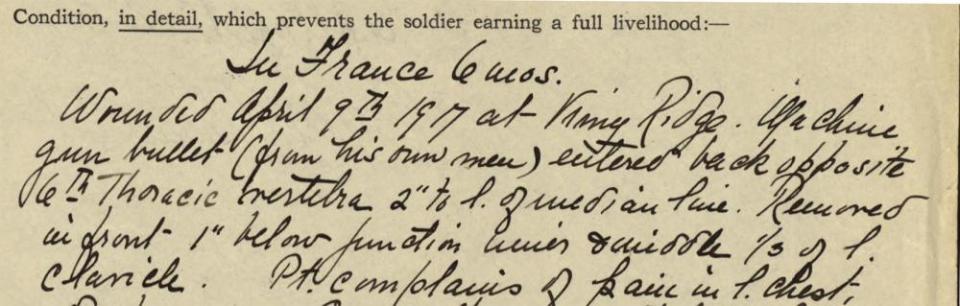 Condition, in detail, which prevents the soldier earning a full livelihood:—
In France 6 mos.
Wounded April 9th 1917 at Vimy Ridge. Machine
gun bullet (from his own men) entered back opposite
6th Thoracic vertebra 2" to l. of median line. Removed
in front 1" below junction inner & middle 1/3 of l.
clavicle. Pt. complains of pain in l. chest